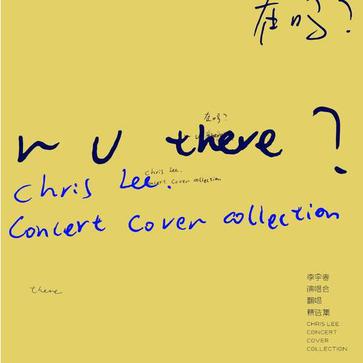 在吗?
在吗?
r u there ?
Chris Lee.
Concert Cover collection
Chris Lee.
Concert Cover collection
there
李宇春
演唱会
翻唱
精选集
CHRIS LEE
CONCERT
COVER
COLLECTION